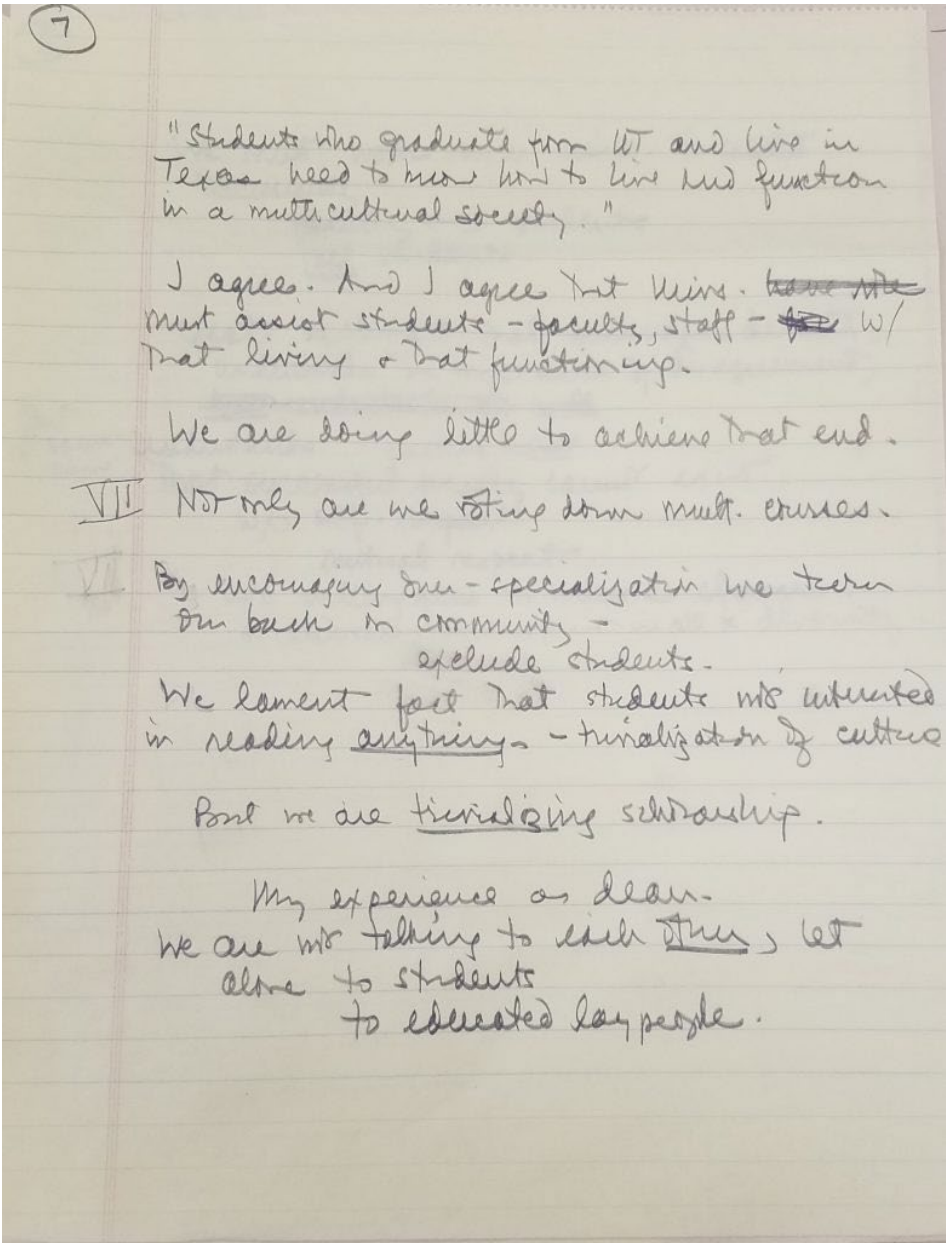 7
"Students who graduate from UT and live in
Texas need to know how to live and function
in a multicultural society."
I agree. And I agree that Univs.
must assist students - faculty, staff - w/
that living & that functioning.
We are doing little to achieve that end.
VII Not only are we voting down mult. courses.
VII. By encouraging over-specialization we turn
our back on community -
exclude students.
We lament fact that students not interested
in reading anything. - trivialization of culture
But we are trivializing scholarship.
My experience as dean.
We are not talking to each other, let
alone to students
to educated lay people.